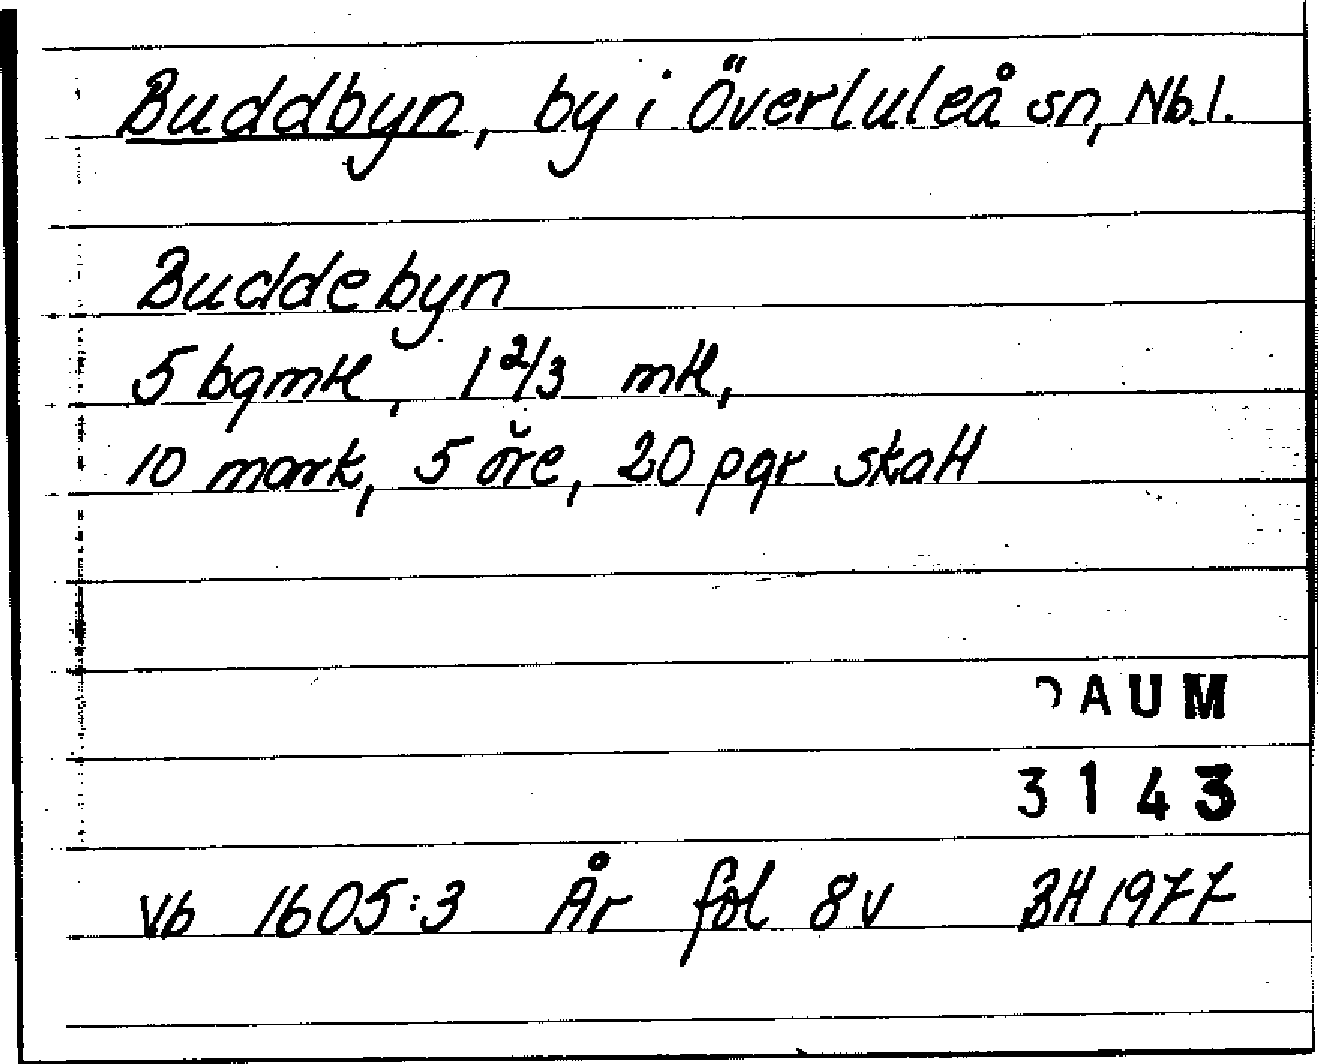 Buddbyn, by i Överluleå sn, Nb.l.
Buddebyn
5 bgmtl, 1 2/3 mtl,
10 mark, 5 öre, 20 pgr skatt
DAUM
3143
Vb 1605:3 År fol 8v BH 1977